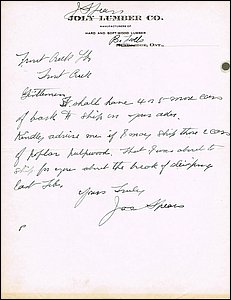 J Spears
JOLY LUMBER CO.
MANUFACTURERS OF
HARD AND SOFT WOOD LUMBER
Ont.
Trout Creek
Trout Creek
Gentlemen
I shall have 4 or 5 more cars
of bark to ship in your
Kindly advise me if I may ship those 2 cars
of poplar pulpwood, that I was about to
ship for you about the break of
last
Yours Truly
Jas Spears